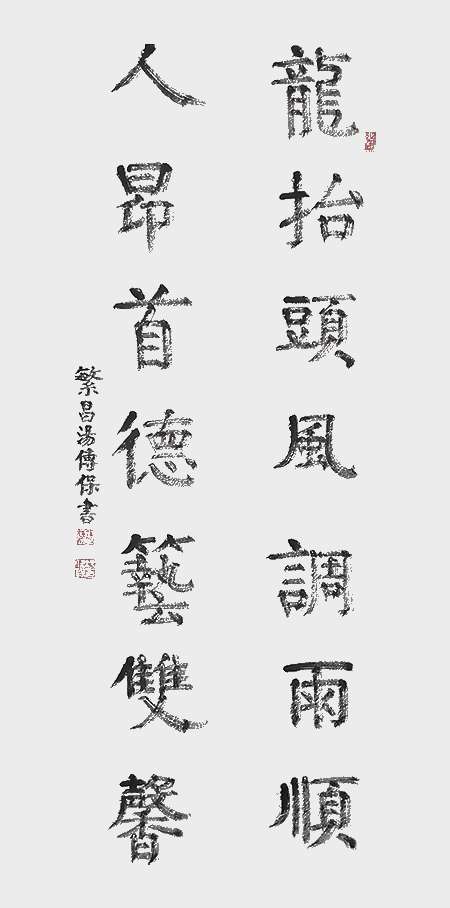 龍抬頭風調雨順
人昂首德藝雙馨
繁昌湯傳保書